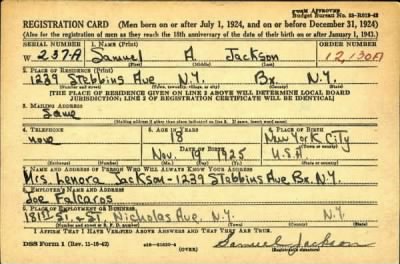 FORM APPROVED
Budget Bureau No. 33-R012-42
REGISTRATION CARD (Men born on or after July 1, 1924, and on or before December 31, 1924)
(Also for the registration of men as they reach the 18th anniversary of the date of their birth on or after January 1, 1943.)
SERIAL NUMBER 1. NAME (Print) ORDER NUMBER
W 237A Samuel A Jackson 12,130A
(First) (Middle) (Last)
2. PLACE OF RESIDENCE (Print)
1239 Stebbins Ave N.Y. Bx. N.Y.
(Number and street) (Town, township, village, or city) (County) (State)
[THE PLACE OF RESIDENCE GIVEN ON LINE 2 ABOVE WILL DETERMINE LOCAL BOARD
JURISDICTION; LINE 2 OF REGISTRATION CERTIFICATE WILL BE IDENTICAL]
3. MAILING ADDRESS
Same
(Mailing address if other than place indicated on line 2. If same insert word same)
4. TELEPHONE 5. AGE IN YEARS 6. PLACE OF BIRTH
none 18 New York City
DATE OF BIRTH (Town or county)
Nov. 1925 U.S.A.
(Exchange) (Number) (Mo.) (Day) (Yr.) (State or country)
7. NAME AND ADDRESS OF PERSON WHO WILL ALWAYS KNOW YOUR ADDRESS
Mrs. Lenora Jackson-1239 Stebbins Ave Bx. N.Y.
8. EMPLOYER'S NAME AND ADDRESS
Joe Falcaros
9. PLACE OF EMPLOYMENT OR BUSINESS
181st St. & ST. Nicholas Ave. N.Y. N.Y.
(Number and street or R. F. D. number) (Town) (County) (State)
I AFFIRM THAT I HAVE VERIFIED ABOVE ANSWERS AND THAT THEY ARE TRUE.
DSS Form 1 (Rev. 11-16-42) (OVER) Samuel Jackson
(Registrant's signature)